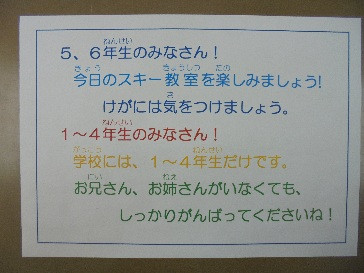 5、6年生のみなさん!
今日のスキー教室を楽しみましょう!
けがには気をつけましょう。
1～4年生のみなさん!
学校には、1～4年生だけです。
お兄さん、お姉さんがいなくても、
しっかりがんばってくださいね!